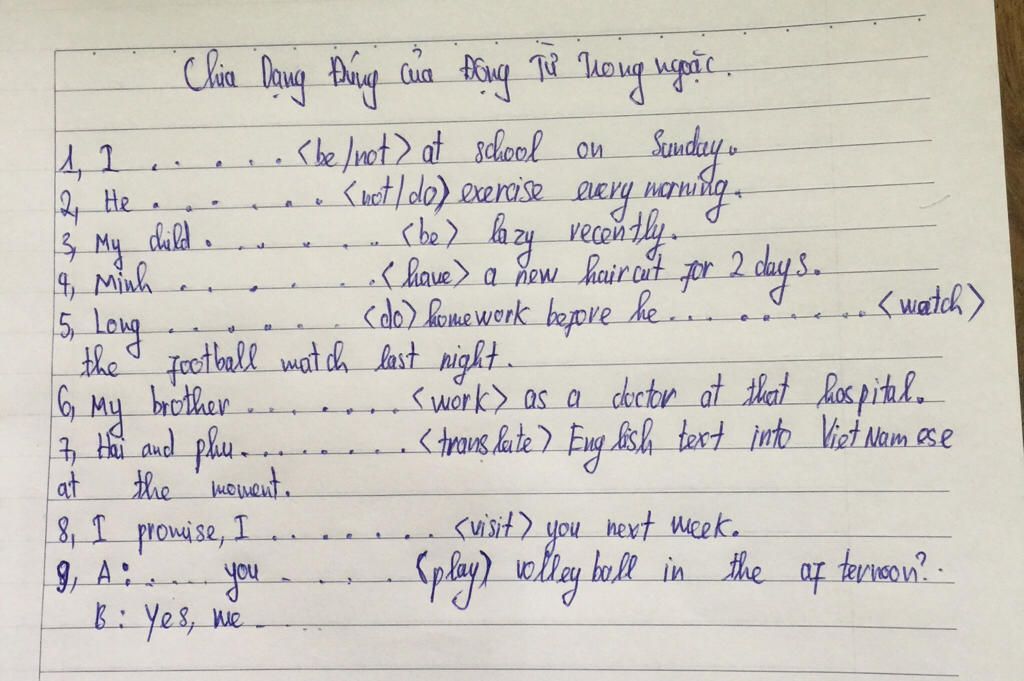 Chia Dạng Đúng Của Động Từ Trong ngoặc.
1, I ...... <be/not> at school on Sunday.
2, He ....... <not/do) exercise every morning.
3, My child ....... <be> lazy recently.
4, Minh ....... <have> a new haircut for 2 days.
5, Long ....... <do) homework before he .......... <watch>
the football match last night.
6, My brother ....... <work> as a doctor at that hospital.
7, Hai and phu ........ <translate> English text into VietNamese
at the moment.
8, I promise, I ........ <visit> you next week.
9, A: .... you ..... (play) volleyball in the afternoon?
B: Yes, we ...